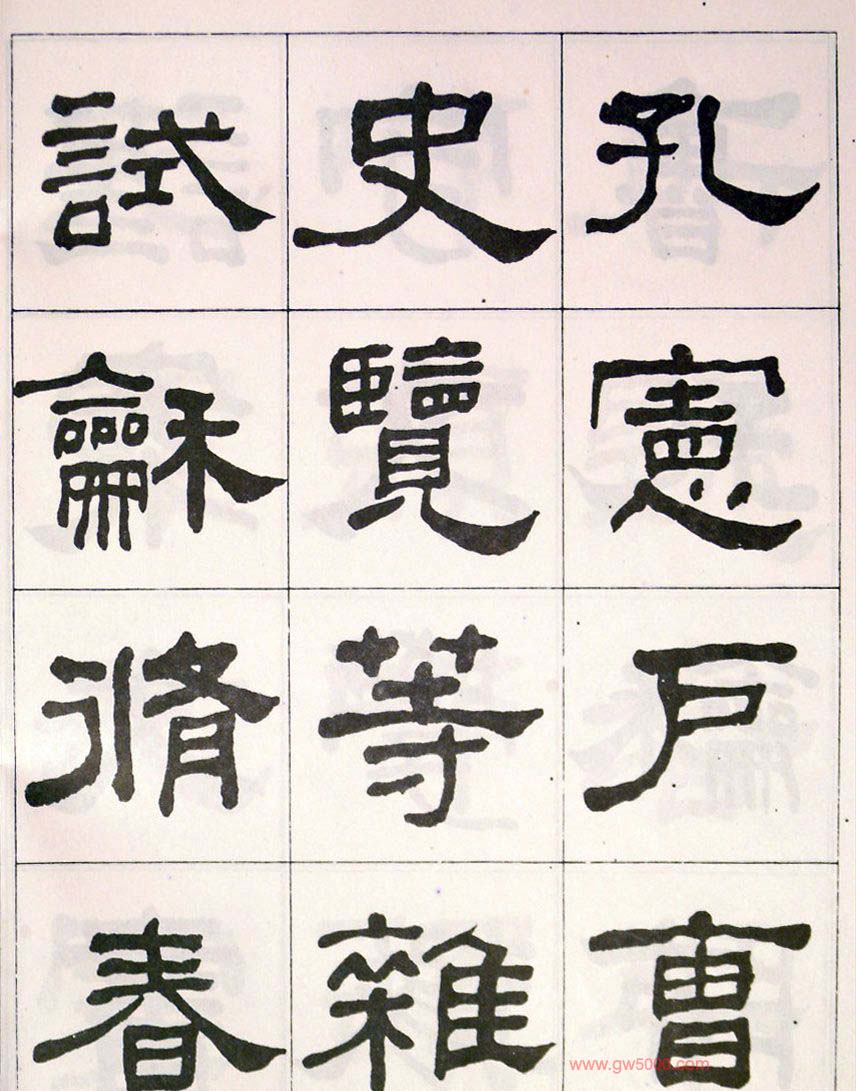 孔憲戶曹
史覽等雜
試龢脩春
www.gw5000.com